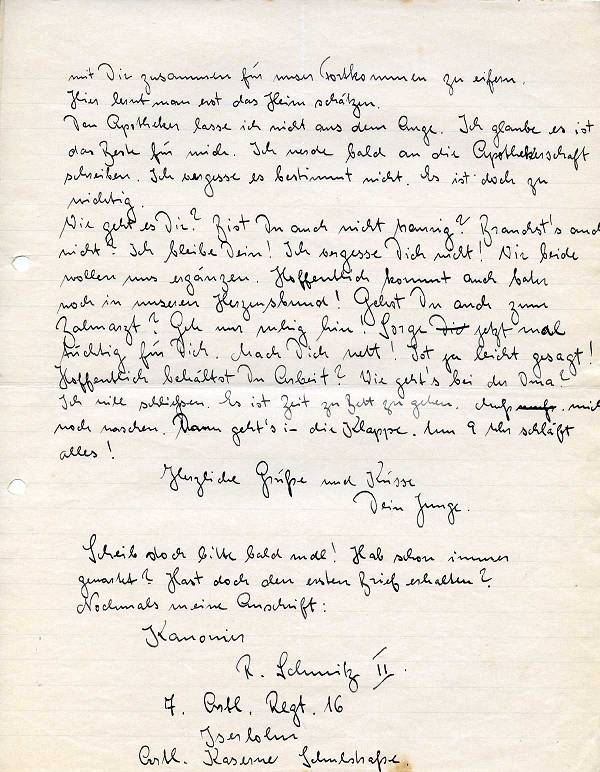 mit Dir zusammen für unser Fortkommen zu eifern.
Hier lernt man erst das Heim schätzen.
Den Apotheker lasse ich nicht aus dem Auge. Ich glaube es ist
das Beste für mich. Ich werde bald an die Apothekerschaft
schreiben. Ich vergesse es bestimmt nicht. Es ist doch zu
wichtig.
Wie geht es Dir? Bist Du auch nicht traurig? Brauchst's auch
nicht! Ich bleibe Dein! Ich vergesse Dich nicht! Wir beide
wollen uns ergänzen. Hoffentlich kommt auch
noch in unseren Herzensbund! Gehst Du auch zum
Zahnarzt? Geh nur ruhig hin! Sorge jetzt mal
tüchtig für Dich. Mach Dich nett! Ist ja leicht gesagt!
Hoffentlich behältst Du Arbeit? Wie geht's bei der Oma?
Ich will schließen. Es ist Zeit zu Bett zu gehen. Muß mich
noch waschen. Dann geht's in die Klappe. Um 9 Uhr schläft
alles!
Herzliche Grüße und Küsse
Dein Junge.
Schreib doch bitte bald mal! Hab schon immer
gewartet? Hast doch den ersten Brief erhalten?
Nochmals meine Anschrift:
Kanonier
R. Schmitz II.
7. Artl. Regt. 16
Iserlohn
Artl. Kaserne Schulstraße.